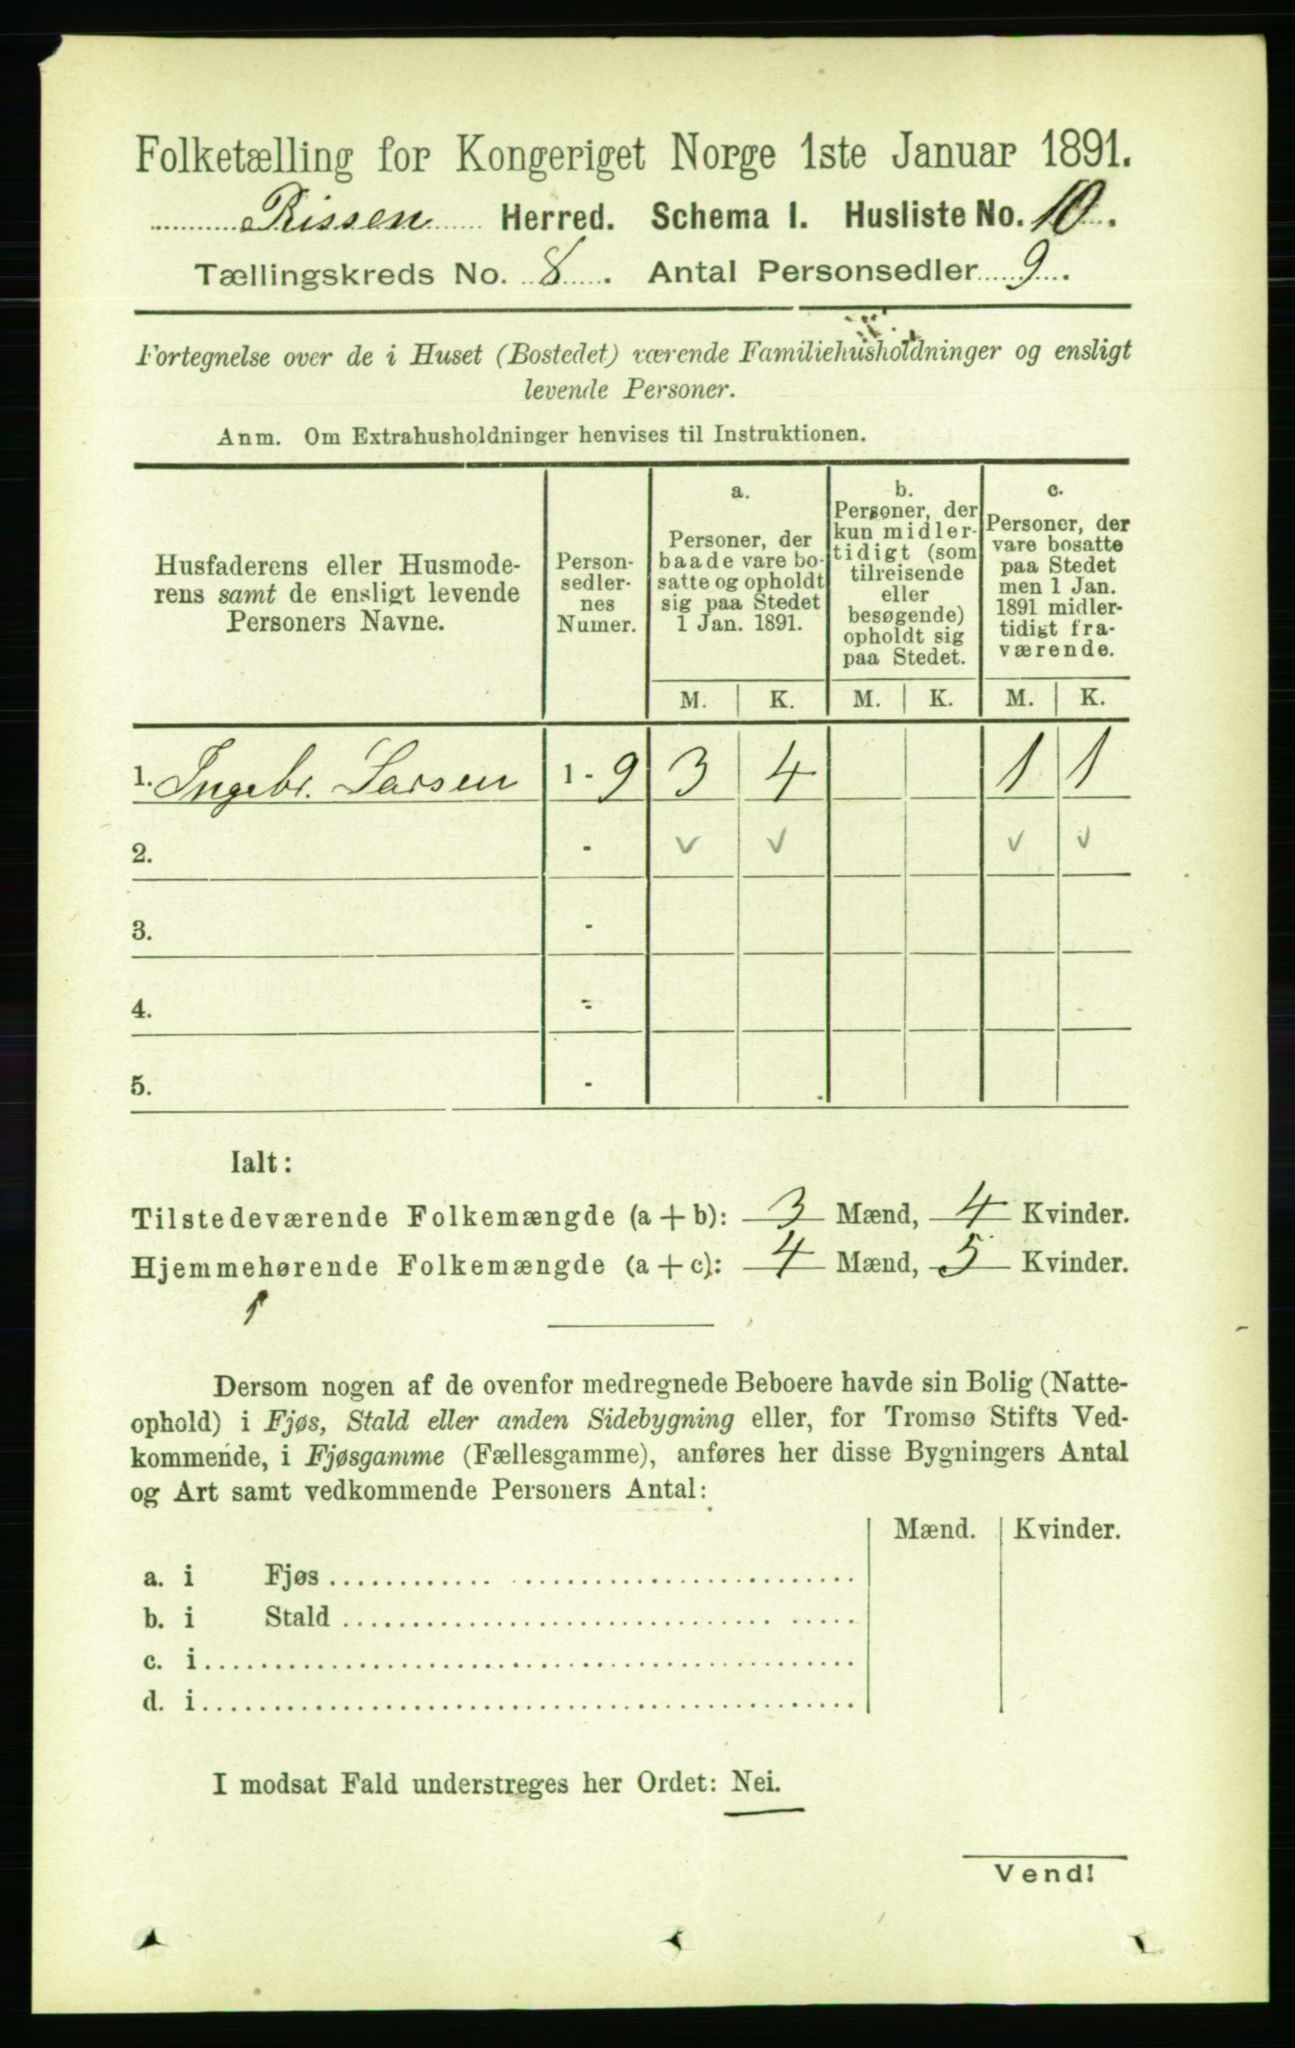 Folketælling for Kongeriget Norge 1ste Januar 1891.
Rissen Herred. Schema I. Husliste No. 10.
Tællingskreds No. 8. Antal Personsedler 9.
Fortegnelse over de i Huset (Bostedet) værende Familiehusholdninger og ensligt
levende Personer.
Anm. Om Extrahusholdninger henvises til Instruktionen.
Husfaderens eller Husmode-
rens samt de ensligt levende
Personers Navne.
Person-
sedler-
nes
Numer.
a.
Personer, der
baade vare bo-
satte og opholdt
sig paa Stedet
1 Jan. 1891.
b.
Personer, der
kun midler-
tidigt (som
tilreisende
eller
besøgende)
opholdt sig
paa Stedet.
c.
Personer, der
vare bosatte
paa Stedet
men 1 Jan.
1891 midler-
tidigt fra-
værende.
M. K. M. K. M. K.
1. Ingebr. Larsen 1 - 9 3 4 1 1
2. - v v v v
3. -
4. -
5. -
Ialt:
Tilstedeværende Folkemængde (a + b): 3 Mænd, 4 Kvinder.
Hjemmehørende Folkemængde (a + c): 4 Mænd, 5 Kvinder.
Dersom nogen af de ovenfor medregnede Beboere havde sin Bolig (Natte-
ophold) i Fjøs, Stald eller anden Sidebygning eller, for Tromsø Stifts Ved-
kommende, i Fjøsgamme (Fællesgamme), anføres her disse Bygningers Antal
og Art samt vedkommende Personers Antal:
Mænd. Kvinder.
a. i Fjøs
b. i Stald
c. i
d. i
I modsat Fald understreges her Ordet: Nei.
Vend!